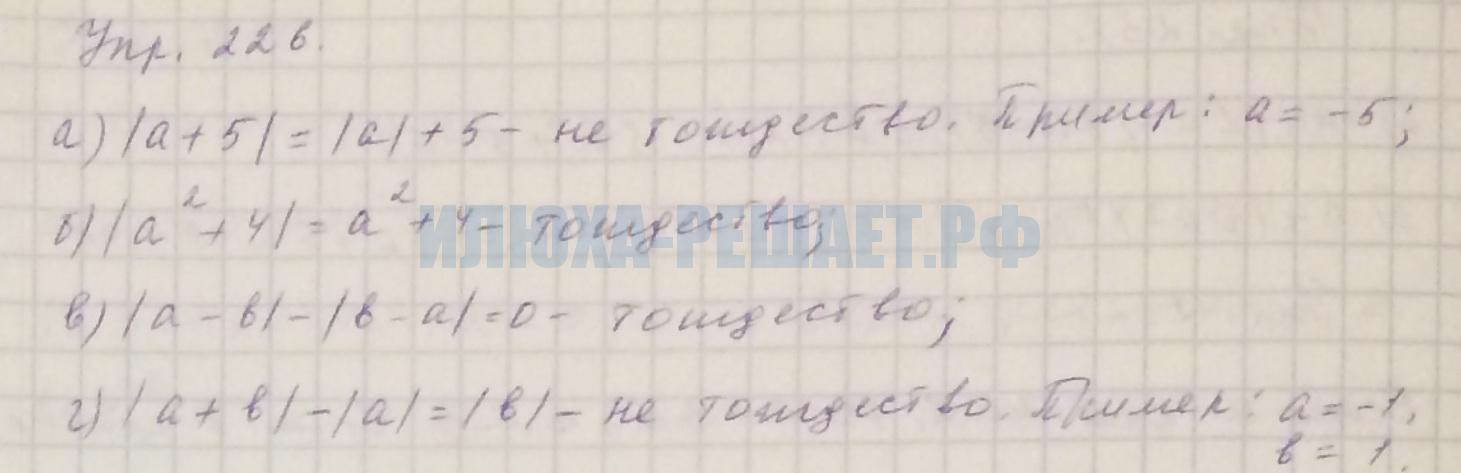 Упр. 226.
а) |a + 5| = |a| + 5 - не тождество. Пример: a = -5;
б) |a² + 4| = a² + 4 - тождество;
ИЛЮХА-РЕШАЕТ.РФ
в) |a - в| - |в - a| = 0 - тождество;
г) |a + в| - |a| = |в| - не тождество. Пример: a = -1,
в = 1.